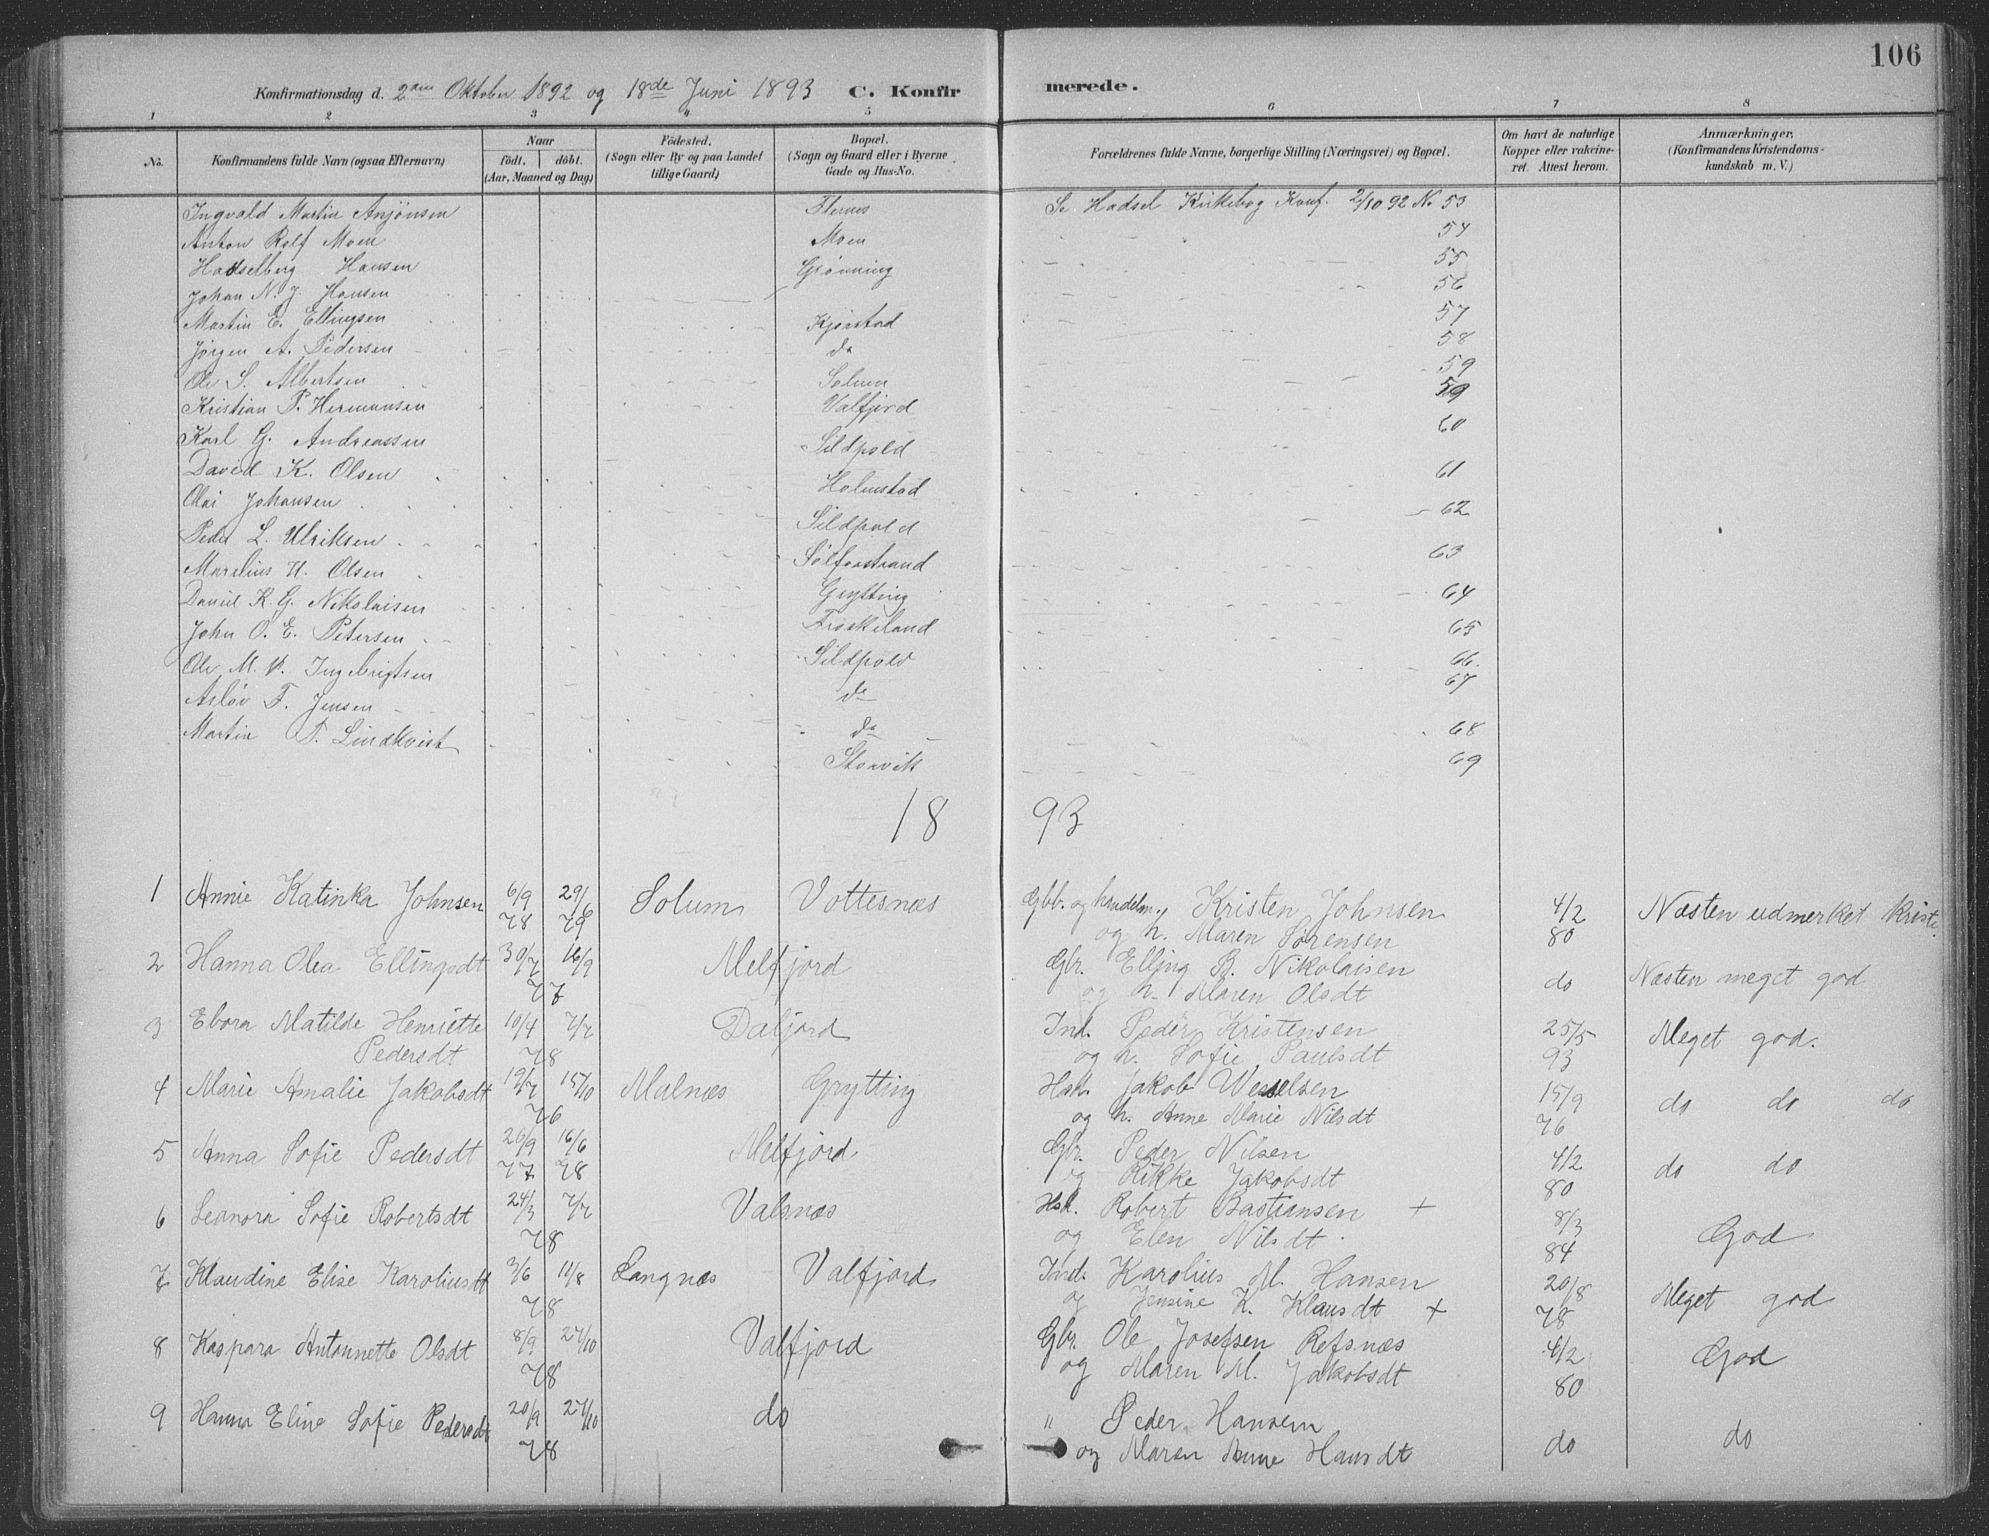 106
Konfirmationsdag d. 2den Oktober 1892 og 18de Juni 1893 C. Konfirmerede.
1 2 3 4 5 6 7 8
No. Konfirmandens fulde Navn (ogsaa Efternavn) Naar født. døbt. (Aar, Maaned og Dag) Fødested. (Sogn eller By og paa Landet tillige Gaard.) Bopæl. (Sogn og Gaard eller i Byerne Gade og Hus-No. Forældrenes fulde Navne, borgerlige Stilling (Næringsvei) og Bopæl. Om havt de naturlige Kopper eller vakcineret. Attest herom. Anmærkninger. (Konfirmandens Kristendomskundskab m. V.)
Ingvald Martin Anjønsen Se Hadsel Kirkebog Konf. 2/10 92 No 53
Anton Rolf Moen Moen 54
Hadselberg Hansen Grønning 55
Johan N. J. Hansen 56
Martin E. Ellingsen Kjørstad 57
Jørgen A. Pedersen do 58
Ole S. Albertsen Solum 59
Kristian P. Hermansen Valfjord 59
Karl G. Andreassen Sildpold 60
David K. Olsen Holmstad 61
Olai Johansen Sildpold 62
Peder L. Ulriksen 63
Marelius H. Olsen Grytting 64
Daniel K. G. Nikolaisen Froskeland 65
John O. E. Petersen Sildpold 66.
Ole M. Ingebrigtsen do 67
Asløv F. Jensen do 68
Martin F. Lindkvist Storvik 69
1893
1 Annie Katinka Johnsen 6/9 78 29/6 79 Solum Vottesnæs Gbr. og handelm. Kristen Johnsen 4/2 80 Næsten udmerket krist.
og h. Maren Sørensen
2 Hanna Olea Ellingsdt 30/7 16/9 77 Melfjord Gbr. Elling B. Nikolaisen do Næsten meget god
og h. Maren Olsdt
3 Ebora Matilde Henriette 10/4 7/7 78 Daljord Ind. Peder Kristensen 25/5 93 Meget god.
Pedersdt og h. Sofie Paulsdt
4 Marie Amalie Jakobsdt 19/7 15/10 76 Malnæs Grytting Hsk. Jakob Wesselsen 15/9 76 do do do
og h. Anne Marie Nilsdt
5 Anna Sofie Pedersdt 26/9 77 16/6 78 Melfjord Gbr. Peder Nilsen 4/2 80 do do
og Rikke Jakobsdt
6 Leonora Sofie Robertsdt 24/3 7/7 78 Valsnæs Hsk. Robert Bastiansen + 8/3 84 God
og Elen Nilsdt.
7 Klaudine Elise Karoliusdt 3/6 11/8 78 Langnæs Valfjord Ind. Karolius M. Hansen 20/8 78 Meget god
og Jensine K. Klausdt +
8 Kaspara Antonnette Olsdt 8/9 27/10 78 Valfjord Gbr. Ole Josefsen Refsnæs 4/2 80 God
og Maren M. Jakobsdt
9 Hanna Eline Sofie Pedersdt 20/9 27/10 78 do " Peder Hansen do do
og Maren Anne Hansdt